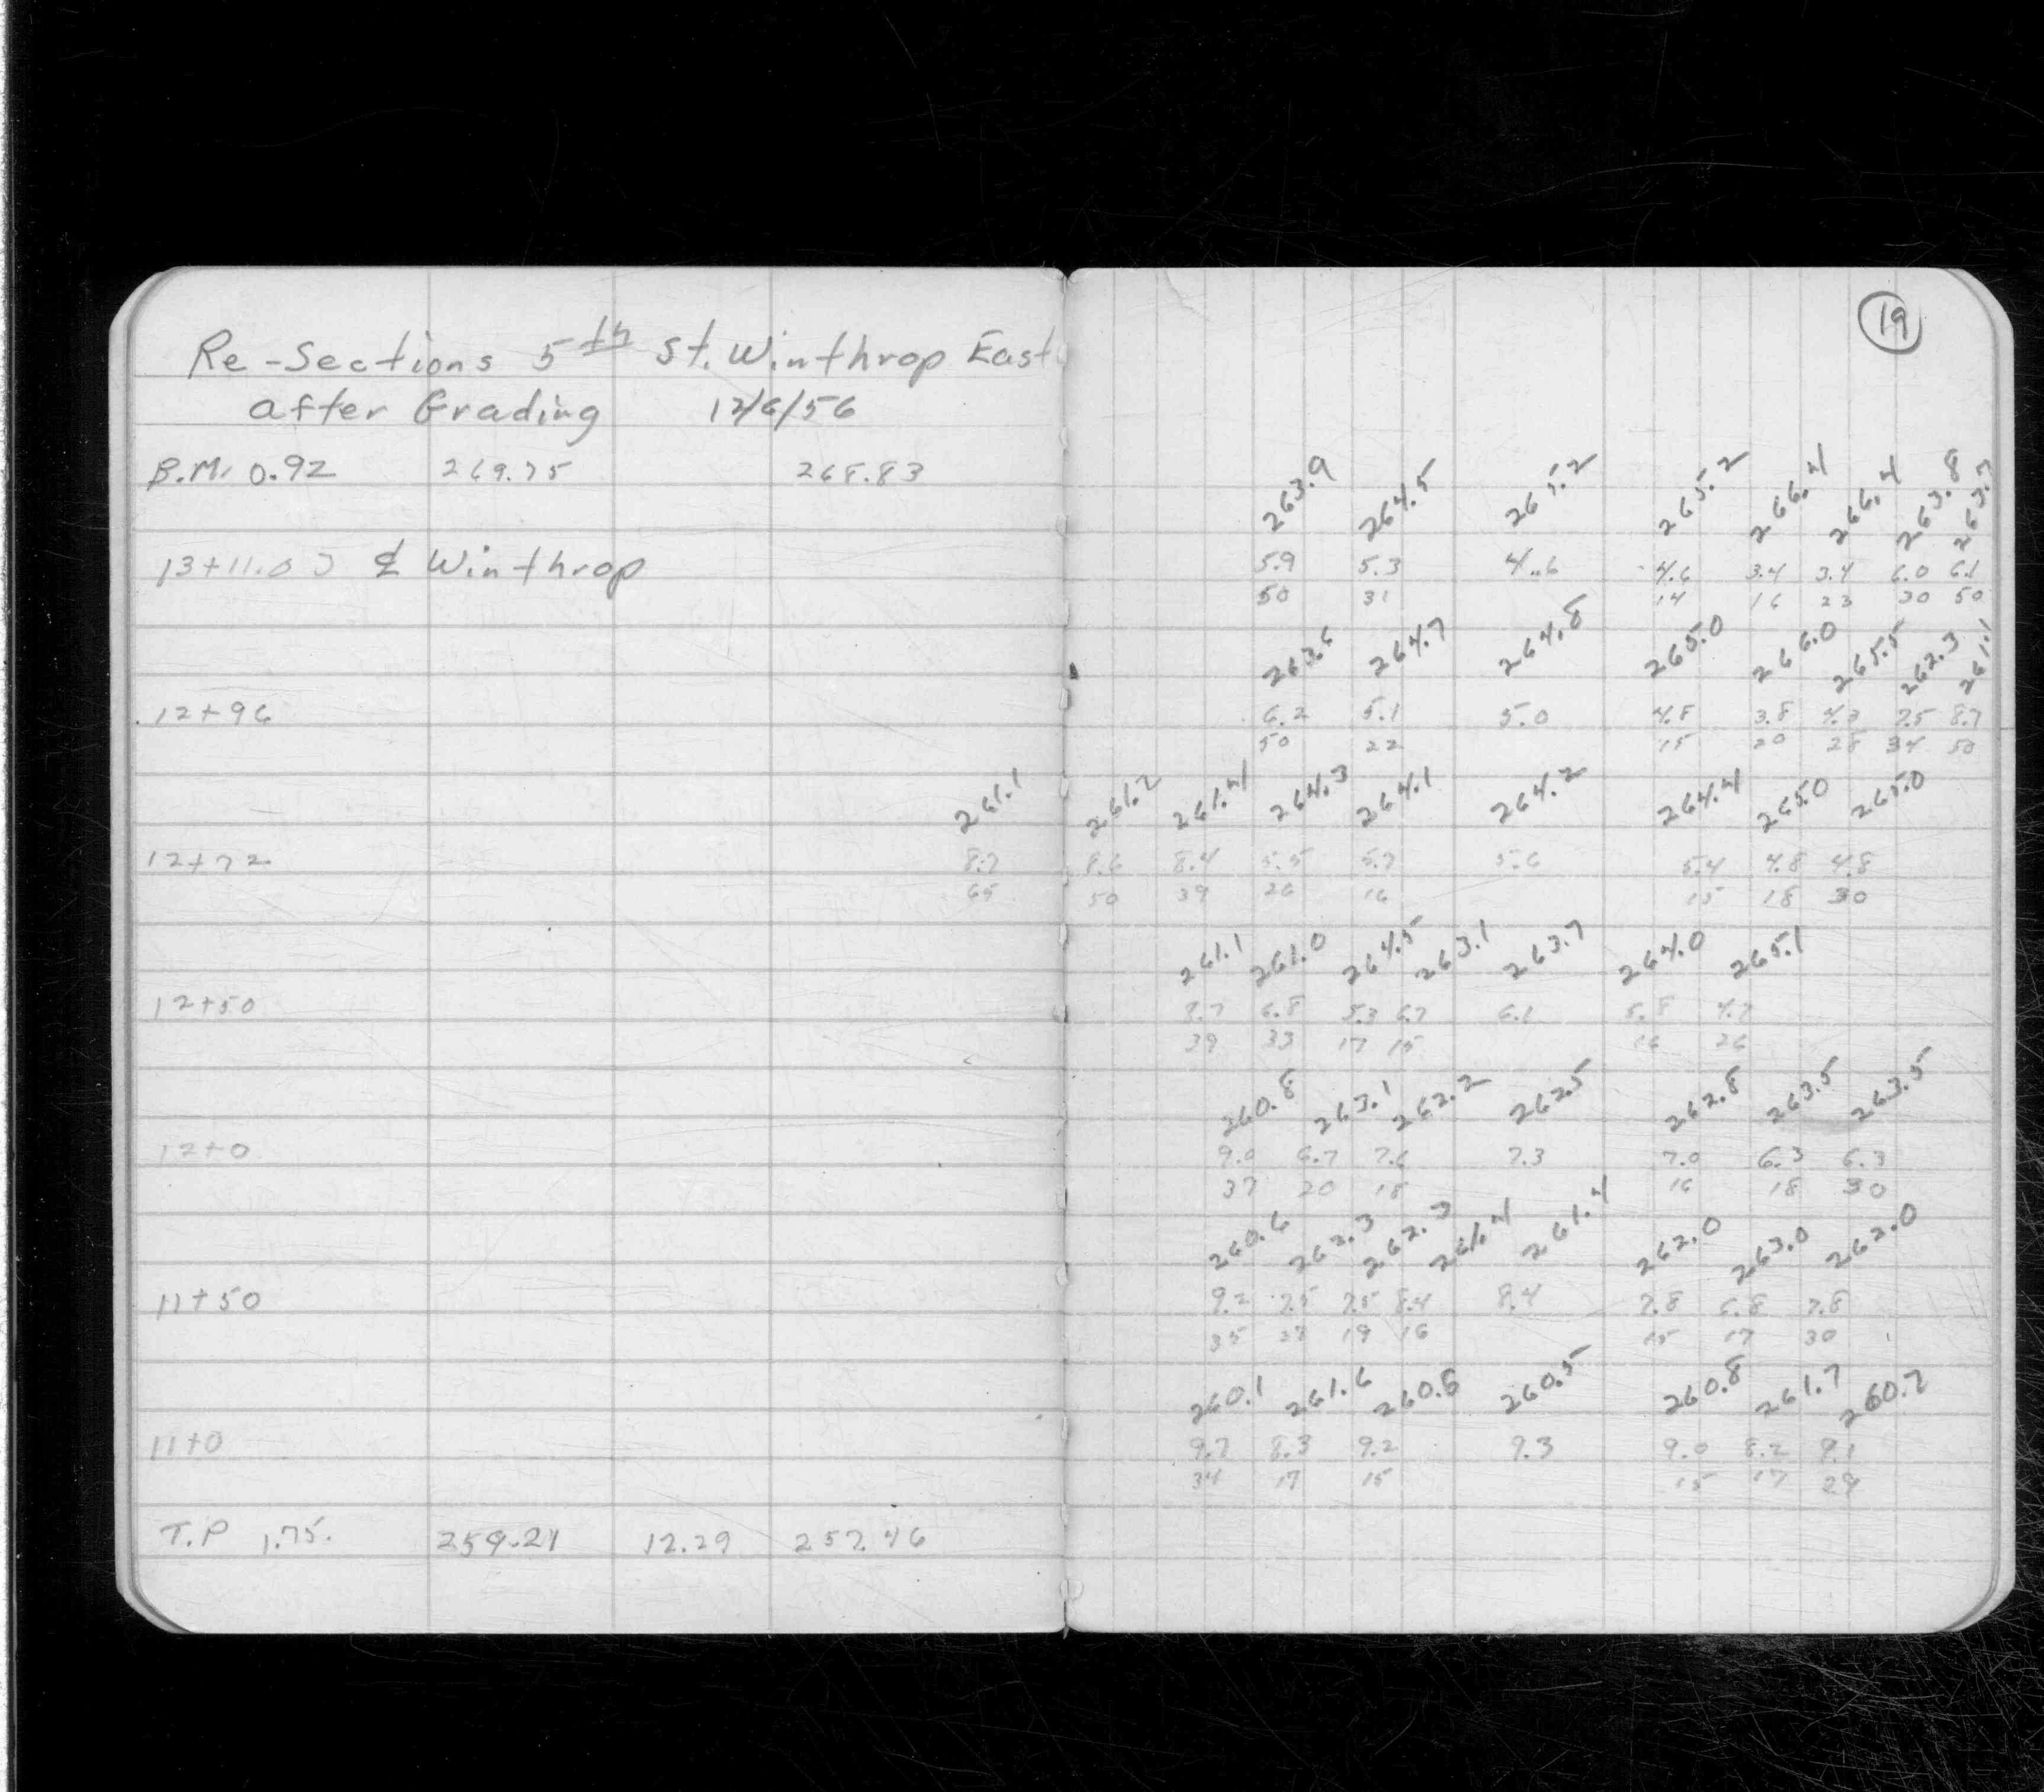 Re-Sections 5th St. Winthrop East
after Grading 12/6/56
19
B.M. 0.92 269.75 268.83
263.9 264.5 265.2 265.2 266.4 266.4 263.8 263.7
13+11.0 ℄ Winthrop 5.9 5.3 4.6 4.6 3.4 3.4 6.0 6.1
50 31 14 16 23 30 50
263.6 264.7 264.8 265.0 266.0 265.5 262.3 261.1
12+96 6.2 5.1 5.0 4.8 3.8 4.3 7.5 8.7
50 22 15 20 28 34 50
261.1 261.2 261.4 264.3 264.1 264.2 264.4 265.0 265.0
12+72 8.7 8.6 8.4 5.5 5.7 5.6 5.4 4.8 4.8
65 50 39 26 16 15 18 30
261.1 261.0 264.5 263.1 263.7 264.0 265.1
12+50 8.7 6.8 5.3 6.7 6.1 5.8 4.7
39 33 17 15 16 26
260.8 263.1 262.2 262.5 262.8 263.5 263.5
12+0 9.0 6.7 7.6 7.3 7.0 6.3 6.3
37 20 18 16 18 30
260.6 262.3 262.3 261.4 261.4 262.0 263.0 262.0
11+50 9.2 7.5 7.5 8.4 8.4 7.8 6.8 7.8
35 27 19 16 15 17 30
260.1 261.6 260.6 260.5 260.8 261.7 260.7
11+0 9.7 8.3 9.2 9.3 9.0 8.2 9.1
34 17 15 15 17 29
T.P 1.75. 259.21 12.29 257.46